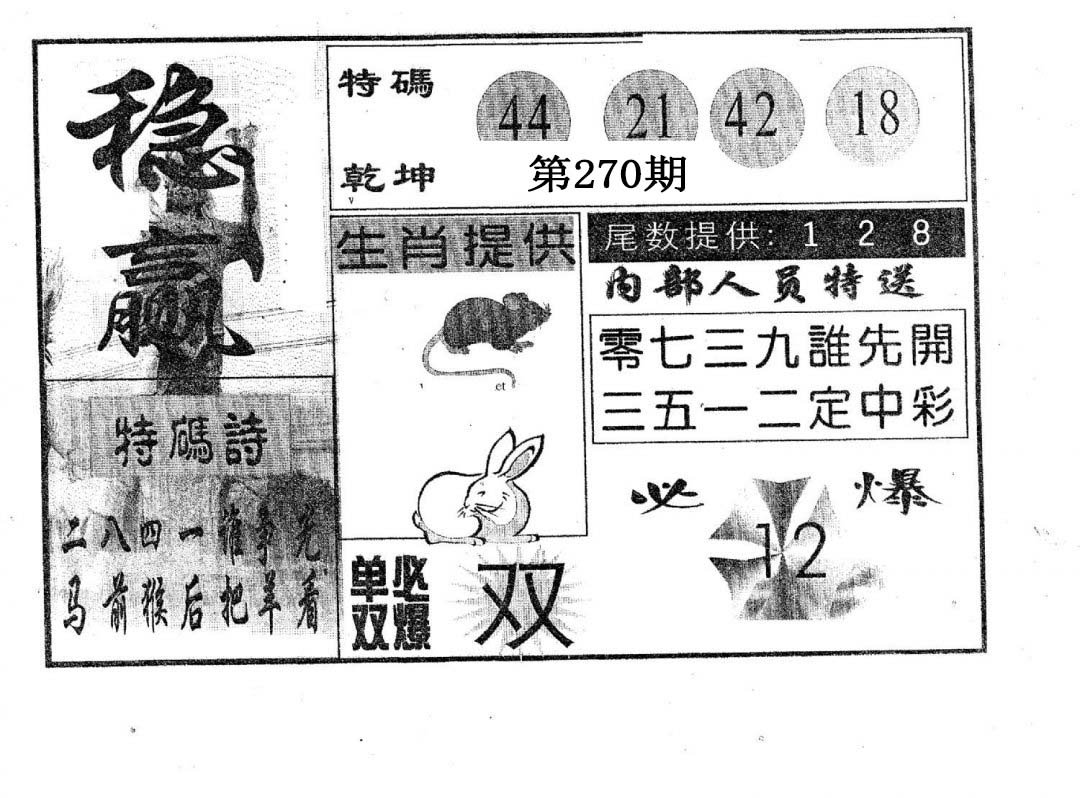 稳赢
特碼 44 21 42 18
乾坤 第270期
生肖提供
尾数提供: 1 2 8
内部人员特送
零七三九誰先開
三五一二定中彩
特碼詩
二八四一誰争先
马前猴后把羊看
必爆
12
单双必爆
双